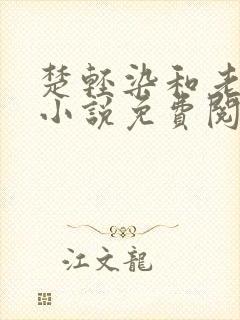 楚輕染和老
小說免費閱
江文龍